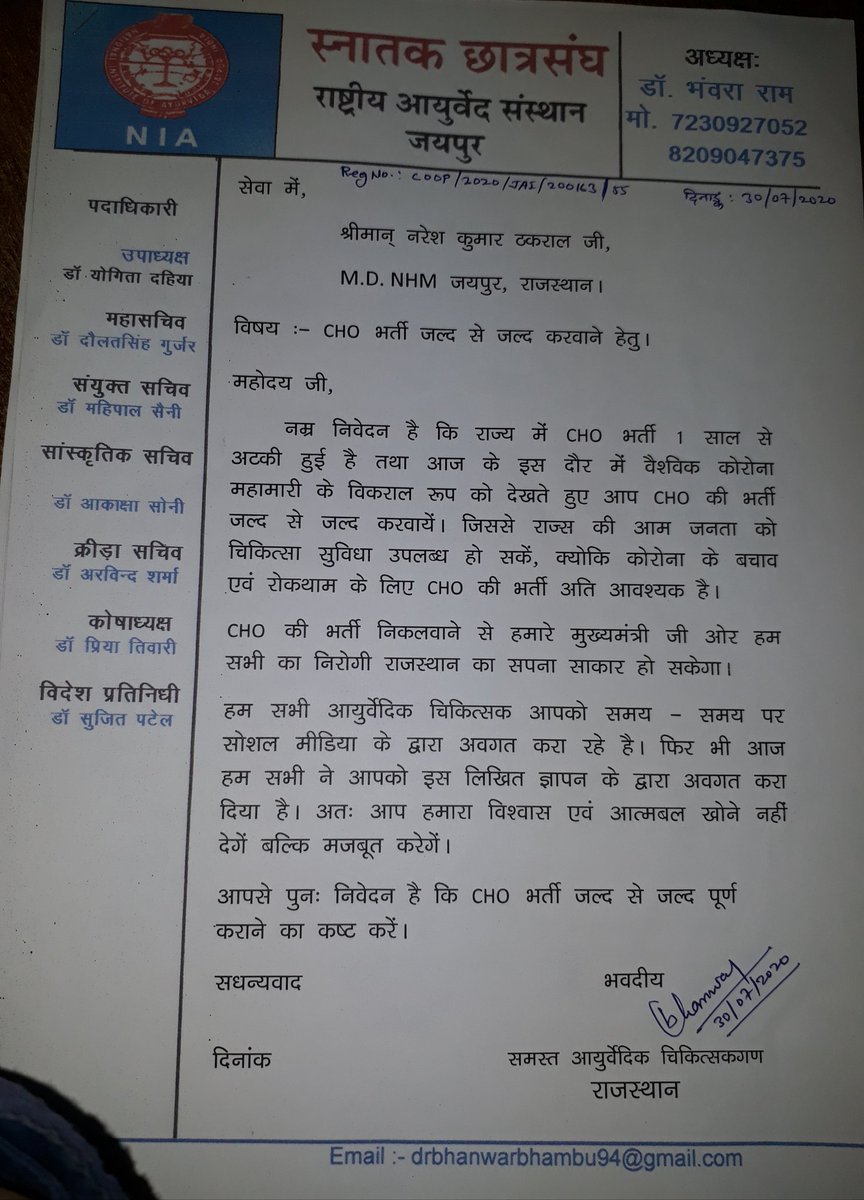 NIA
स्नातक छात्रसंघ
राष्ट्रीय आयुर्वेद संस्थान
जयपुर
अध्यक्षः
डॉ. भंवरा राम
मो. 7230927052
8209047375
Reg No.: COOP/2020/JAI/200163/55
दिनाङ्क : 30/07/2020
पदाधिकारी
उपाध्यक्ष
डॉ योगिता दहिया
महासचिव
डॉ दौलतसिंह गुर्जर
संयुक्त सचिव
डॉ महिपाल सैनी
सांस्कृतिक सचिव
डॉ आकाक्षा सोनी
क्रीड़ा सचिव
डॉ अरविन्द शर्मा
कोषाध्यक्ष
डॉ प्रिया तिवारी
विदेश प्रतिनिधी
डॉ सुजित पटेल
सेवा में,
श्रीमान् नरेश कुमार टकराल जी,
M.D. NHM जयपुर, राजस्थान।
विषय :– CHO भर्ती जल्द से जल्द करवाने हेतु।
महोदय जी,
नम्र निवेदन है कि राज्य में CHO भर्ती 1 साल से
अटकी हुई है तथा आज के इस दौर में वैश्विक कोरोना
महामारी के विकराल रूप को देखते हुए आप CHO की भर्ती
जल्द से जल्द करवायें। जिससे राज्स की आम जनता को
चिकित्सा सुविधा उपलब्ध हो सकें, क्योकि कोरोना के बचाव
एवं रोकथाम के लिए CHO की भर्ती अति आवश्यक है।
CHO की भर्ती निकलवाने से हमारे मुख्यमंत्री जी ओर हम
सभी का निरोगी राजस्थान का सपना साकार हो सकेगा।
हम सभी आयुर्वेदिक चिकित्सक आपको समय – समय पर
सोशल मीडिया के द्वारा अवगत करा रहे है। फिर भी आज
हम सभी ने आपको इस लिखित ज्ञापन के द्वारा अवगत करा
दिया है। अतः आप हमारा विश्वास एवं आत्मबल खोने नहीं
देगें बल्कि मजबूत करेगें।
आपसे पुनः निवेदन है कि CHO भर्ती जल्द से जल्द पूर्ण
कराने का कष्ट करें।
सधन्यवाद
भवदीय
30/07/2020
दिनांक
समस्त आयुर्वेदिक चिकित्सकगण
राजस्थान
Email :- drbhanwarbhambu94@gmail.com